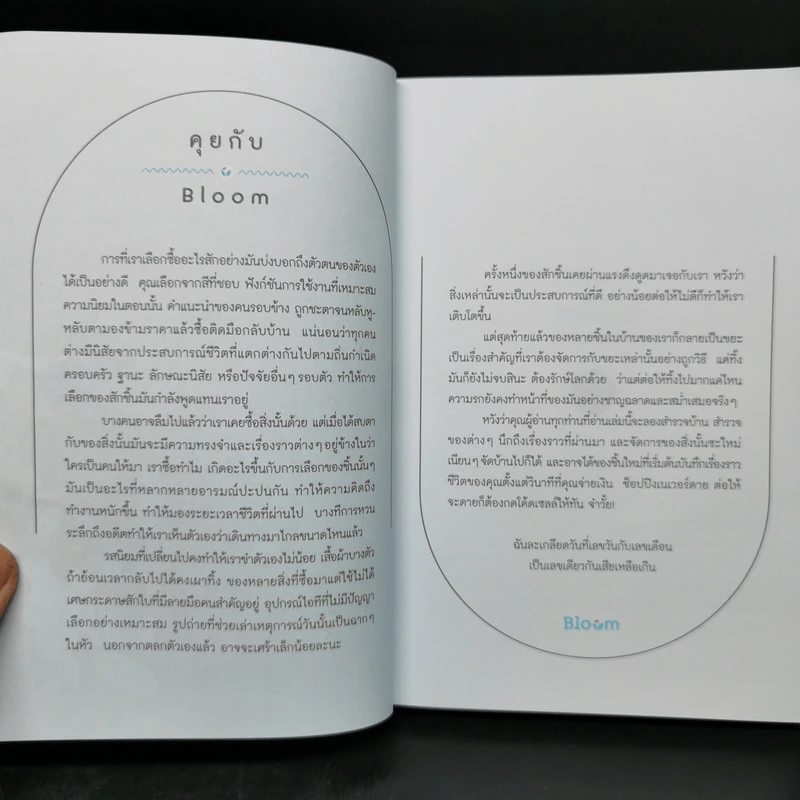 คุยกับ
Bloom
การที่เราเลือกซื้ออะไรสักอย่างมันบ่งบอกถึงตัวตนของตัวเอง
ได้เป็นอย่างดี คุณเลือกจากสีที่ชอบ ฟังก์ชันการใช้งานที่เหมาะสม
ความนิยมในตอนนั้น คำแนะนำของคนรอบข้าง ถูกชะตาจนหลับหู-
หลับตามองข้ามราคาแล้วซื้อติดมือกลับบ้าน แน่นอนว่าทุกคน
ต่างมีนิสัยจากประสบการณ์ชีวิตที่แตกต่างกันไปตามถิ่นกำเนิด
ครอบครัว ฐานะ ลักษณะนิสัย หรือปัจจัยอื่นๆ รอบตัว ทำให้การ
เลือกของสักชิ้นมันกำลังพูดแทนเราอยู่
บางคนอาจลืมไปแล้วว่าเราเคยซื้อสิ่งนั้นด้วย แต่เมื่อได้สบตา
กับของสิ่งนั้นมันจะมีความทรงจำและเรื่องราวต่างๆ อยู่ข้างในว่า
ใครเป็นคนให้มา เราซื้อทำไม เกิดอะไรขึ้นกับการเลือกของชิ้นนั้นๆ
มันเป็นอะไรที่หลากหลายอารมณ์ปะปนกัน ทำให้ความคิดถึง
ทำงานหนักขึ้น ทำให้มองระยะเวลาชีวิตที่ผ่านไป บางทีการหวน
ระลึกถึงอดีตทำให้เราเห็นตัวเองว่าเดินทางมาไกลขนาดไหนแล้ว
รสนิยมที่เปลี่ยนไปคงทำให้เราขำตัวเองไม่น้อย เสื้อผ้าบางตัว
ถ้าย้อนเวลากลับไปได้คงเผาทิ้ง ของหลายสิ่งที่ซื้อมาแต่ใช้ไม่ได้
เศษกระดาษสักใบที่มีลายมือคนสำคัญอยู่ อุปกรณ์ไอทีที่ไม่มีปัญญา
เลือกอย่างเหมาะสม รูปถ่ายที่ช่วยเล่าเหตุการณ์วันนั้นเป็นฉากๆ
ในหัว นอกจากตลกตัวเองแล้ว อาจจะเศร้าเล็กน้อยละนะ
ครั้งหนึ่งของสักชิ้นเคยผ่านแรงดึงดูดมาเจอกับเรา หวังว่า
สิ่งเหล่านั้นจะเป็นประสบการณ์ที่ดี อย่างน้อยต่อให้ไม่ดีก็ทำให้เรา
เติบโตขึ้น
แต่สุดท้ายแล้วของหลายชิ้นในบ้านของเราก็กลายเป็นขยะ
เป็นเรื่องสำคัญที่เราต้องจัดการกับขยะเหล่านั้นอย่างถูกวิธี แค่ทิ้ง
มันก็ยังไม่จบสินะ ต้องรักษ์โลกด้วย ว่าแต่ต่อให้ทิ้งไปมากแค่ไหน
ความรกยังคงทำหน้าที่ของมันอย่างชาญฉลาดและสม่ำเสมอจริงๆ
หวังว่าคุณผู้อ่านทุกท่านที่อ่านเล่มนี้จะลองสำรวจบ้าน สำรวจ
ของต่างๆ นึกถึงเรื่องราวที่ผ่านมา และจัดการของสิ่งนั้นซะใหม่
เนียนๆ จัดบ้านไปก็ได้ และอาจได้ของชิ้นใหม่ที่เริ่มต้นบันทึกเรื่องราว
ชีวิตของคุณตั้งแต่วินาทีที่คุณจ่ายเงิน ช็อปปิงเนเวอร์ดาย ต่อให้
จะดายก็ต้องกดโค้ดเซลล์ให้ทัน จำไว้!
ฉันละเกลียดวันที่เลขวันกับเลขเดือน
เป็นเลขเดียวกันเสียเหลือเกิน
Bloom